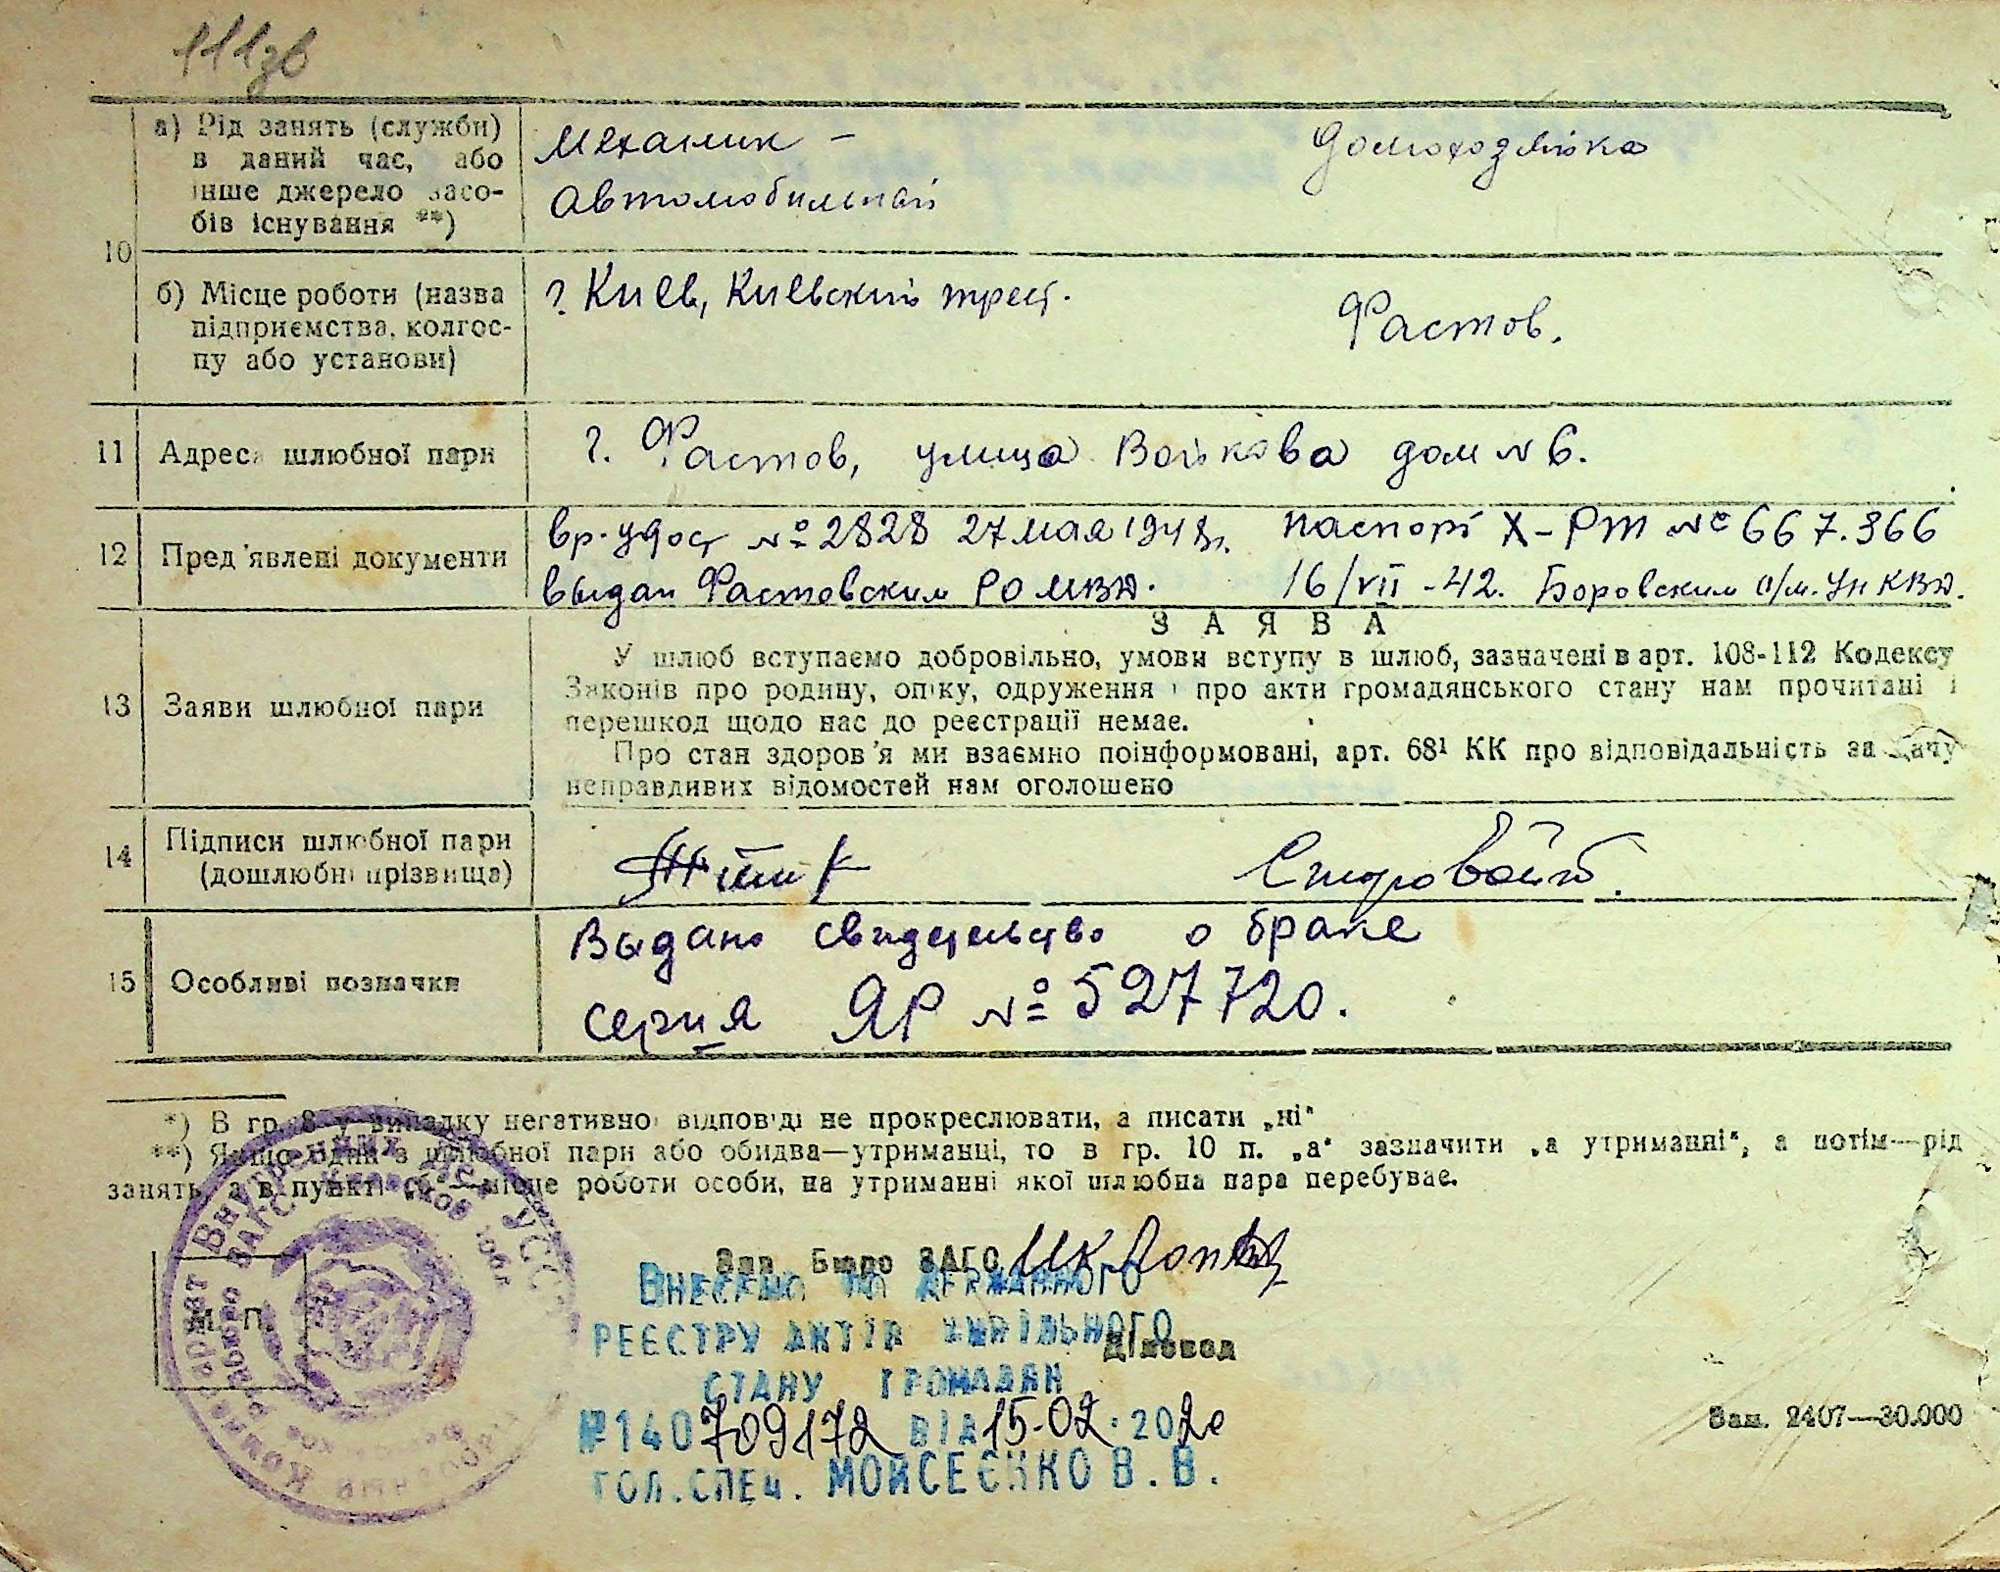 111зв
10
а) Рід занять (служби) в даний час, або інше джерело засобів існування **)
Механик -
автомобильный
Домохозяйка
б) Місце роботи (назва підприємства, колгоспу або установи)
г. Киев, Киевский трест.
Фастов.
11 Адреса шлюбної пари
г. Фастов, улица Войкова дом № 6.
12 Пред'явлені документи
вр. удост №2828 27 мая 1948г.
выдан Фастовским РО МВД.
паспорт X-РТ № 667.366
16/VII-42. Боровским о/м. УНКВД.
13 Заяви шлюбної пари
ЗАЯВА
У шлюб вступаємо добровільно, умови вступу в шлюб, зазначені в арт. 108-112 Кодексу
Законів про родину, опіку, одруження і про акти громадянського стану нам прочитані і
перешкод щодо нас до реєстрації немає.
Про стан здоров'я ми взаємно поінформовані, арт. 68¹ КК про відповідальність за дачу
неправдивих відомостей нам оголошено
14 Підписи шлюбної пари (дошлюбні прізвища)
15 Особливі позначки
Выдано свидетельство о браке
серия ЯР №527720.
*) В гр. 8 у випадку негативної відповіді не прокреслювати, а писати „ні"
**) Якщо один з шлюбної пари або обидва—утриманці, то в гр. 10 п. „а" зазначити „а утриманні", а потім—рід
занять, а в пункті „б"—місце роботи особи, на утриманні якої шлюбна пара перебуває.
М. П.
Зав. Бюро ЗАГС
Діловод
Внесено до Державного
реєстру актів цивільного
стану громадян
№140709172 від 15.02.2020
гол.спец. Мойсеєнко В.В.
Зам. 2407—30.000